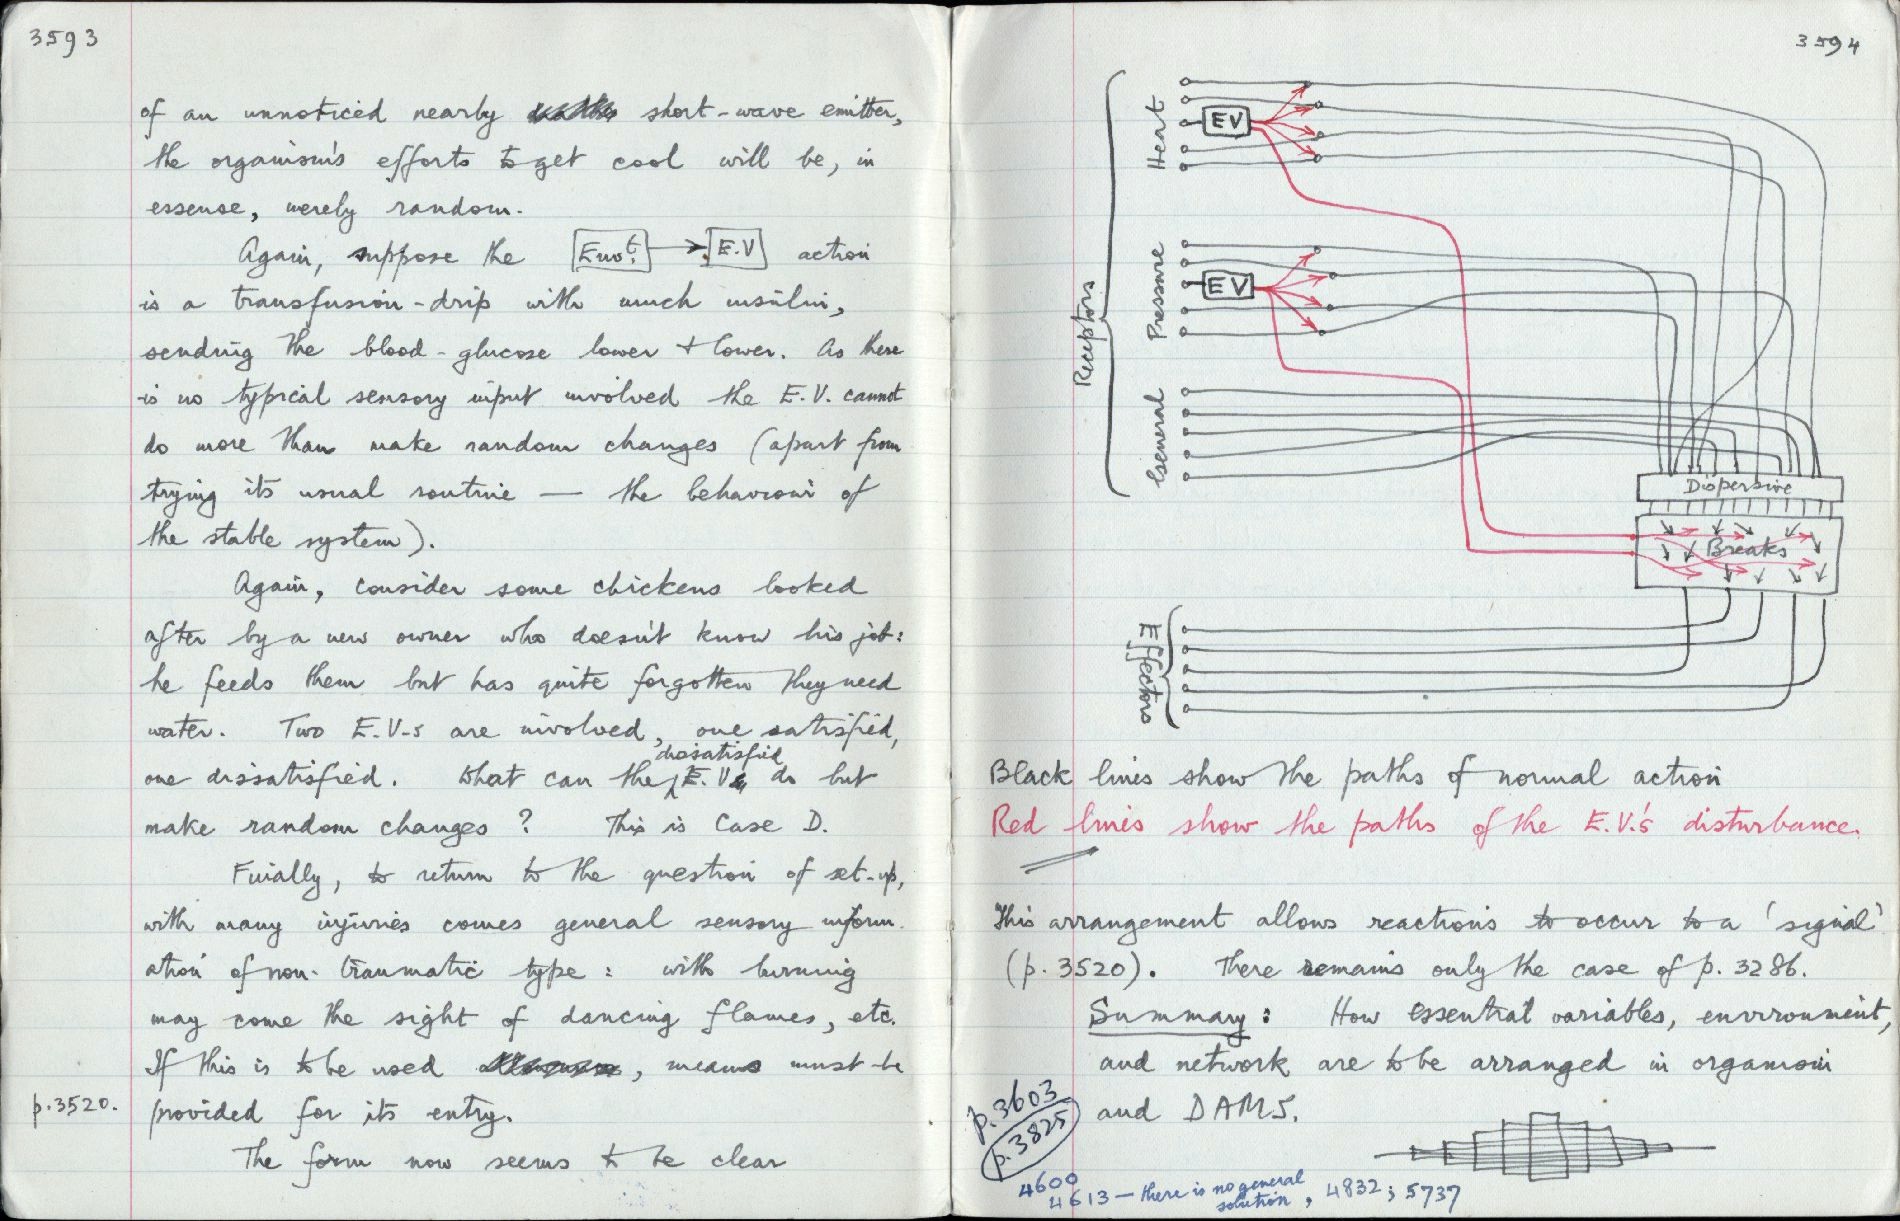 3593
of an unnoticed nearly short-wave emitter,
the organism's efforts to get cool will be, in
essense, merely random.
Again, suppose the Envt. → E.V action
is a transfusion-drip with much insulin,
sending the blood-glucose lower + lower. As there
is no typical sensory input involved the E.V. cannot
do more than make random changes (apart from
trying its usual routine — the behaviour of
the stable system).
Again, consider some chickens looked
after by a new owner who doesn't know his job:
he feeds them but has quite forgotten they need
water. Two E.V-s are involved, one satisfied,
dissatisfied
one dissatisfied. What can the E.V. do but
make random changes? This is Case D.
Finally, to return to the question of set-up,
with many injuries comes general sensory inform-
ation of non-traumatic type: with burning
may come the sight of dancing flames, etc.
If this is to be used, means must be
p.3520. provided for its entry.
The form now seems to be clear
3594
Receptors
Heat
EV
Pressure
EV
General
Dispersive
Breaks
Effectors
Black lines show the paths of normal action
Red lines show the paths of the E.V.'s disturbance.
This arrangement allows reactions to occur to a 'signal'
(p. 3520). There remains only the case of p. 3286.
Summary: How essential variables, environment,
and network are to be arranged in organism
and DAMS.
p.3603
p.3825
4600
4613 — there is no general
solution, 4832; 5737